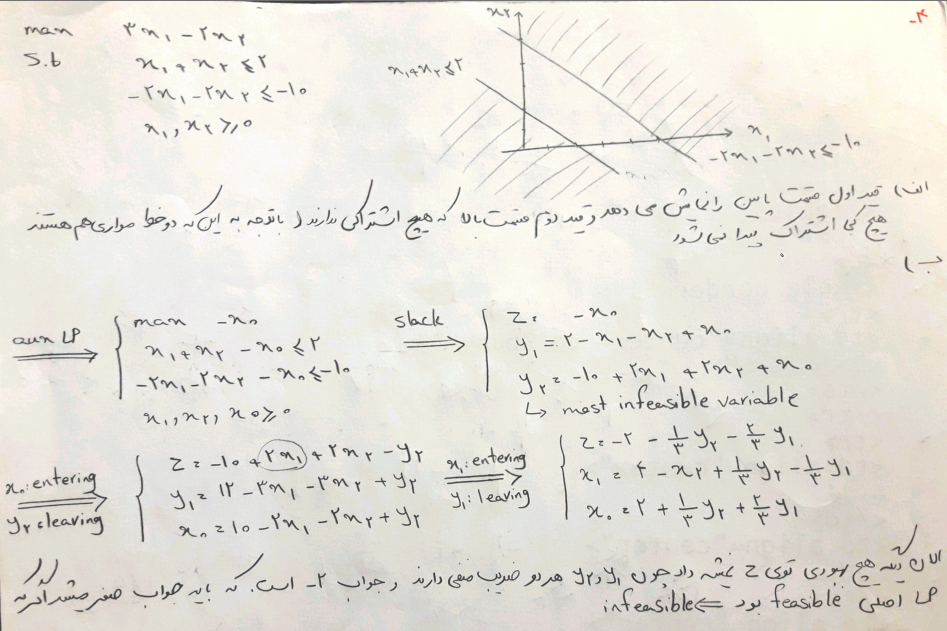 -۴
max ۳x₁ - ۲x₂
s.t x₁ + x₂ ≤ ۲
-۲x₁ - ۲x₂ ≤ -۱۰
x₁, x₂ ≥ ۰
x₂
x₁+x₂ ≤ ۲
x₁
-۲x₁-۲x₂ ≤ -۱۰
الف) قید اول قسمت پایین را نمایش می دهد و قید دوم قسمت بالا که هیچ اشتراکی ندارند ( با توجه به این که دو خط موازی هم هستند
هیچ گی اشتراک پیدا نمی شود
ب)
aux LP ⇒ max -x₀
x₁+x₂ - x₀ ≤ ۲
-۲x₁-۲x₂ - x₀ ≤ -۱۰
x₁, x₂, x₀ ≥ ۰
slack ⇒ z = -x₀
y₁ = ۲ - x₁ - x₂ + x₀
y₂ = -۱۰ + ۲x₁ + ۲x₂ + x₀
↳ most infeasible variable
x₀: entering
y₂: leaving
⇒ z = -۱۰ + ۲x₁ + ۲x₂ - y₂
y₁ = ۱۲ - ۳x₁ - ۳x₂ + y₂
x₀ = ۱۰ - ۲x₁ - ۲x₂ + y₂
x₁: entering
y₁: leaving
⇒ z = -۲ - ۱/۳ y₂ - ۲/۳ y₁
x₁ = ۴ - x₂ + ۱/۳ y₂ - ۱/۳ y₁
x₀ = ۲ + ۱/۳ y₂ + ۲/۳ y₁
الان دیگه هیچ بهبودی توی z نمیشه داد چون y₁ و y₂ هر دو ضریب منفی دارند و جواب -۲ است. که باید جواب صفر میشد اگر که
LP اصلی feasible بود ⇒ infeasible